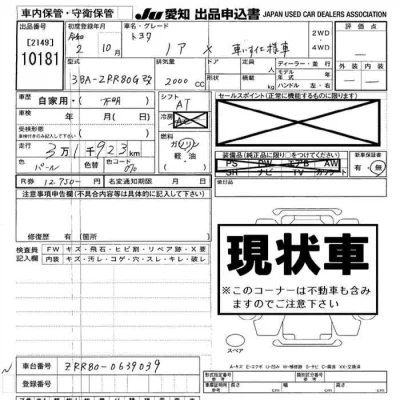 車内保管・守衛保管
JU 愛知 出品申込書 JAPAN USED CAR DEALERS ASSOCIATION
出品番号 [2149] 10181
初度登録年月 令和 2 年 10 月
車名・グレード トヨタ ノア X 車いす仕様車
2WD・4WD
評価点
外装 内装
型式 3BA-ZRR80G改
排気量 2000 CC
ドア 人
ディーラー・並行
モデル年式 年
ハンドル 左・右
車歴 自家用・
シフト AT
冷房
車検 年 月
受検形態
燃料 ガソリン 軽油
走行 3万1千923km
色 パール
色コード 070
R券 12,750-円
名変期限 月 日
セールスポイント(正常に機能するものに限ります)
装備品(純正品に限り○をつけてください)
PS PW エアB AW
SR ナビ TV カワ
新車保証書 有・無
注意事項申告欄(不具合内容等は具体的に記入して下さい)
修復歴 有(箇所 )
検査員記入欄
FW キズ・飛石・ヒビ割・リペア跡・X要
内装 キズ・汚レ・コゲ・穴・スレ・キレ・破レ
現状車
※このコーナーは不動車も含みますのでご注意下さい
スペア
車台番号 ZRR80-0639039
登録番号